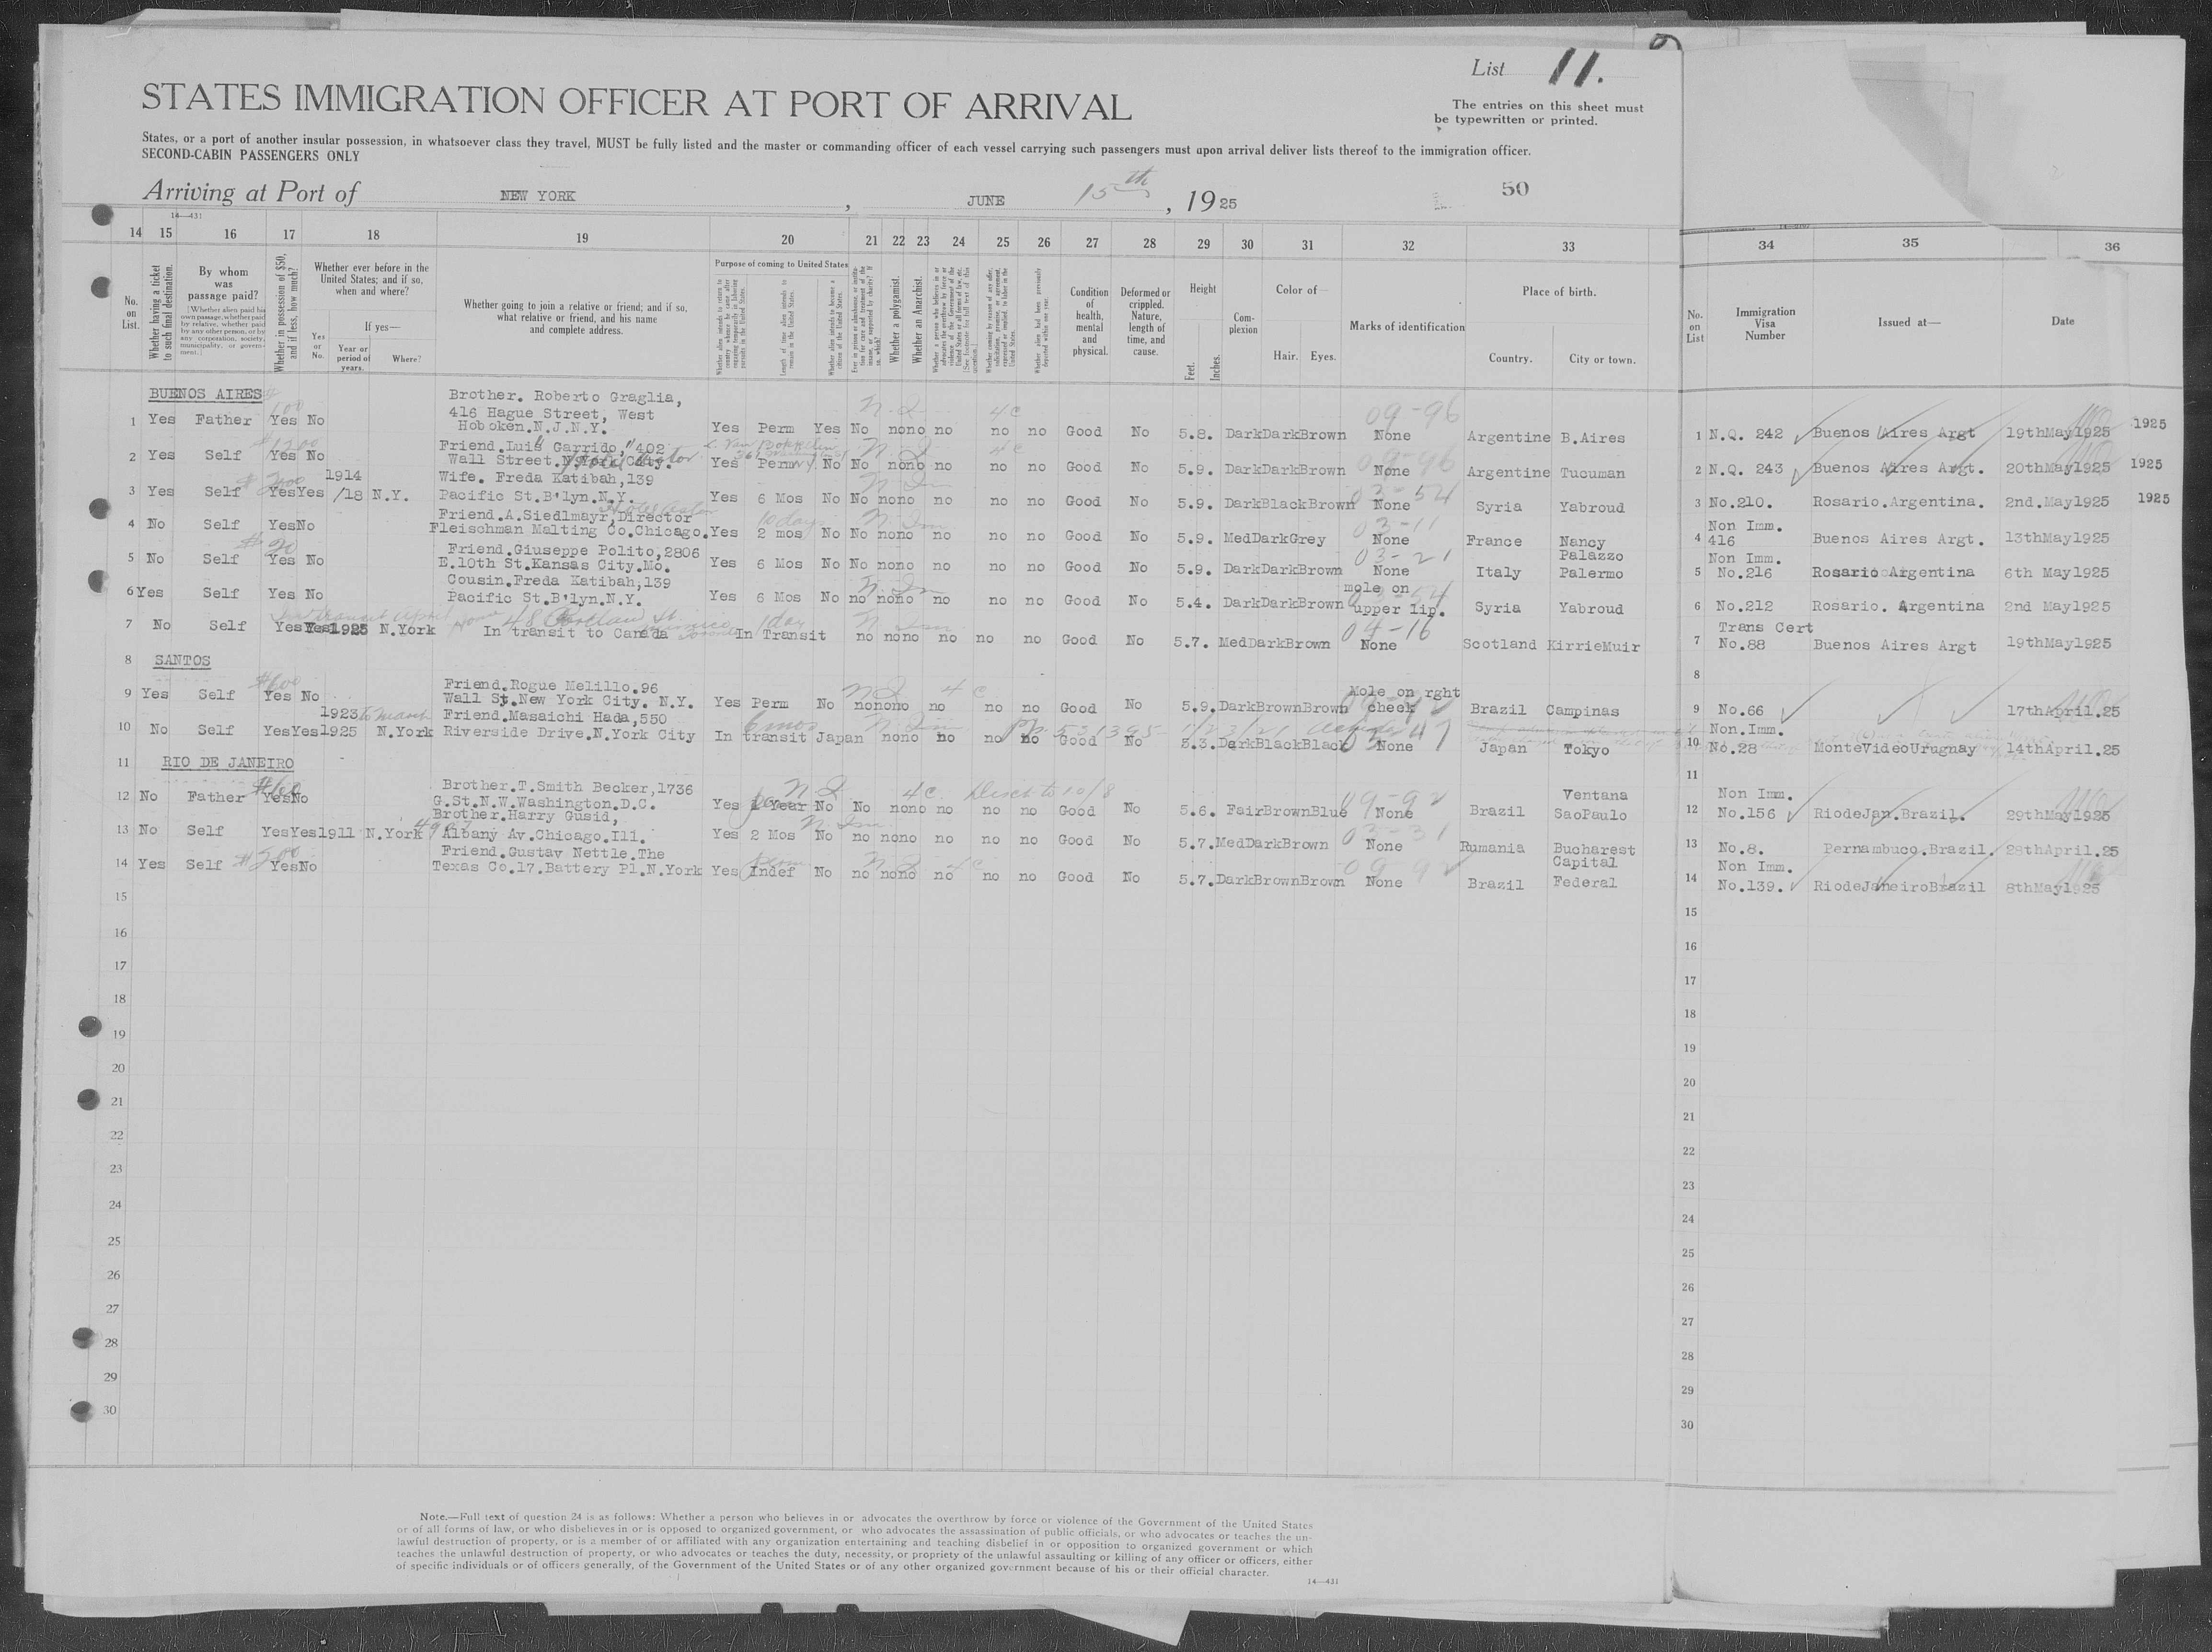 List 11.
STATES IMMIGRATION OFFICER AT PORT OF ARRIVAL
The entries on this sheet must
be typewritten or printed.
States, or a port of another insular possession, in whatsoever class they travel, MUST be fully listed and the master or commanding officer of each vessel carrying such passengers must upon arrival deliver lists thereof to the immigration officer.
SECOND-CABIN PASSENGERS ONLY
Arriving at Port of NEW YORK, JUNE 15th, 1925
50
14—431
14 15 16 17 18 19 20 21 22 23 24 25 26 27 28 29 30 31 32 33 34 35 36
No. on List.
Whether having a ticket to such final destination.
By whom was passage paid?
[Whether alien paid his own passage, whether paid by relative, whether paid by any other person, or by any corporation, society, municipality, or government.]
Whether in possession of $50, and if less, how much?
Whether ever before in the United States; and if so, when and where?
Yes or No.
If yes—
Year or period of years.
Where?
Whether going to join a relative or friend; and if so, what relative or friend, and his name and complete address.
Purpose of coming to United States
Length of time alien intends to remain in the United States.
Whether alien intends to become a citizen of the United States.
Whether a polygamist.
Whether an Anarchist.
Whether alien had been previously deported within one year.
Condition of health, mental and physical.
Deformed or crippled. Nature, length of time, and cause.
Height
Feet. Inches.
Complexion
Color of—
Hair. Eyes.
Marks of identification
Place of birth.
Country. City or town.
No. on List
Immigration Visa Number
Issued at—
Date
BUENOS AIRES
1 Yes Father Yes No Brother. Roberto Graglia, 416 Hague Street, West Hoboken.N.J.N.Y. Yes Perm Yes No nono no no no Good No 5.8. DarkDarkBrown None Argentine B.Aires 1 N.Q. 242 Buenos Aires Argt 19thMay1925 1925
2 Yes Self Yes No Friend.Luis Garrido, 402 Wall Street.N.York City. Yes Perm No No nono no no no Good No 5.9. DarkDarkBrown None Argentine Tucuman 2 N.Q. 243 Buenos Aires Argt. 20thMay1925 1925
3 Yes Self YesYes 1914 /18 N.Y. Wife. Freda Katibah,139 Pacific St.B'lyn.N.Y. Yes 6 Mos No No nono no no no Good No 5.9. DarkBlackBrown None Syria Yabroud 3 No.210. Rosario.Argentina. 2nd.May1925 1925
4 No Self YesNo Friend.A.Siedlmayr,Director Fleischman Malting Co.Chicago. Yes 2 mos No No nono no no no Good No 5.9. MedDarkGrey None France Nancy 4 Non Imm. 416 Buenos Aires Argt. 13thMay1925
5 No Self Yes No Friend.Giuseppe Polito,2806 E.10th St.Kansas City.Mo. Yes 6 Mos No No nono no no no Good No 5.9. DarkDarkBrown None Italy Palazzo Palermo 5 Non Imm. No.216 Rosario Argentina 6th May1925
6 Yes Self Yes No Cousin.Freda Katibah,139 Pacific St.B'lyn.N.Y. Yes 6 Mos No no nono no no no Good No 5.4. DarkDarkBrown mole on upper lip. Syria Yabroud 6 No.212 Rosario. Argentina 2nd May1925
7 No Self YesYes1925 N.York In transit to Canada In Transit no nono no no no Good No 5.7. MedDarkBrown None Scotland KirrieMuir 7 Trans Cert No.88 Buenos Aires Argt 19thMay1925
8 SANTOS 8
9 Yes Self Yes No Friend.Rogue Melillo.96 Wall St.New York City. N.Y. Yes Perm No nonono no no no Good No 5.9.DarkBrownBrown Mole on rght cheek Brazil Campinas 9 No.66 17thApril.25
10 No Self YesYes 1923 to March 1925 N.York Friend.Masaichi Hada,550 Riverside Drive.N.York City In transit Japan nono no no no Good No 5.3.DarkBlackBlack None Japan Tokyo 10 Non.Imm. No.28 MonteVideoUrugnay 14thApril.25
11 RIO DE JANEIRO 11
12 No Father YesNo Brother.T.Smith Becker,1736 G.St.N.W.Washington.D.C. Yes 1 Year No No nono no no no Good No 5.6. FairBrownBlue None Brazil Ventana SaoPaulo 12 Non Imm. No.156 RiodeJan.Brazil. 29thMay1925
13 No Self YesYes1911 N.York Brother.Harry Gusid, Albany Av.Chicago.Ill. Yes 2 Mos No no nono no no no Good No 5.7.MedDarkBrown None Rumania Bucharest 13 No.8. Pernambuco.Brazil. 28thApril.25
14 Yes Self YesNo Friend.Gustav Nettle.The Texas Co.17.Battery Pl.N.York Yes Indef No no nono no no no Good No 5.7.DarkBrownBrown None Brazil Capital Federal 14 Non Imm. No.139. RiodeJaneiroBrazil 8thMay1925
15 15
16 16
17 17
18 18
19 19
20 20
21 21
22 22
23 23
24 24
25 25
26 26
27 27
28 28
29 29
30 30
Note.—Full text of question 24 is as follows: Whether a person who believes in or advocates the overthrow by force or violence of the Government of the United States
or of all forms of law, or who disbelieves in or is opposed to organized government, or who advocates the assassination of public officials, or who advocates or teaches the un-
lawful destruction of property, or is a member of or affiliated with any organization entertaining and teaching disbelief in or opposition to organized government or which
teaches the unlawful destruction of property, or who advocates or teaches the duty, necessity, or propriety of the unlawful assaulting or killing of any officer or officers, either
of specific individuals or of officers generally, of the Government of the United States or of any other organized government because of his or their official character.
14—431